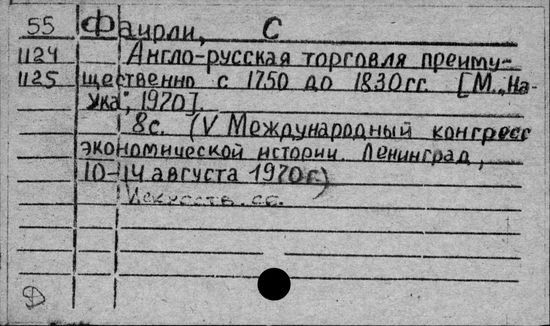 55 Фаирли, С
1124 Англо-русская торговля преиму-
1125 щественно с 1750 до 1830гг. [М.,„На-
ука", 1970].
8с. (V Международный конгресс
экономической истории. Ленинград,
10-14 августа 1970г.)
Искусств. сб.
Ф